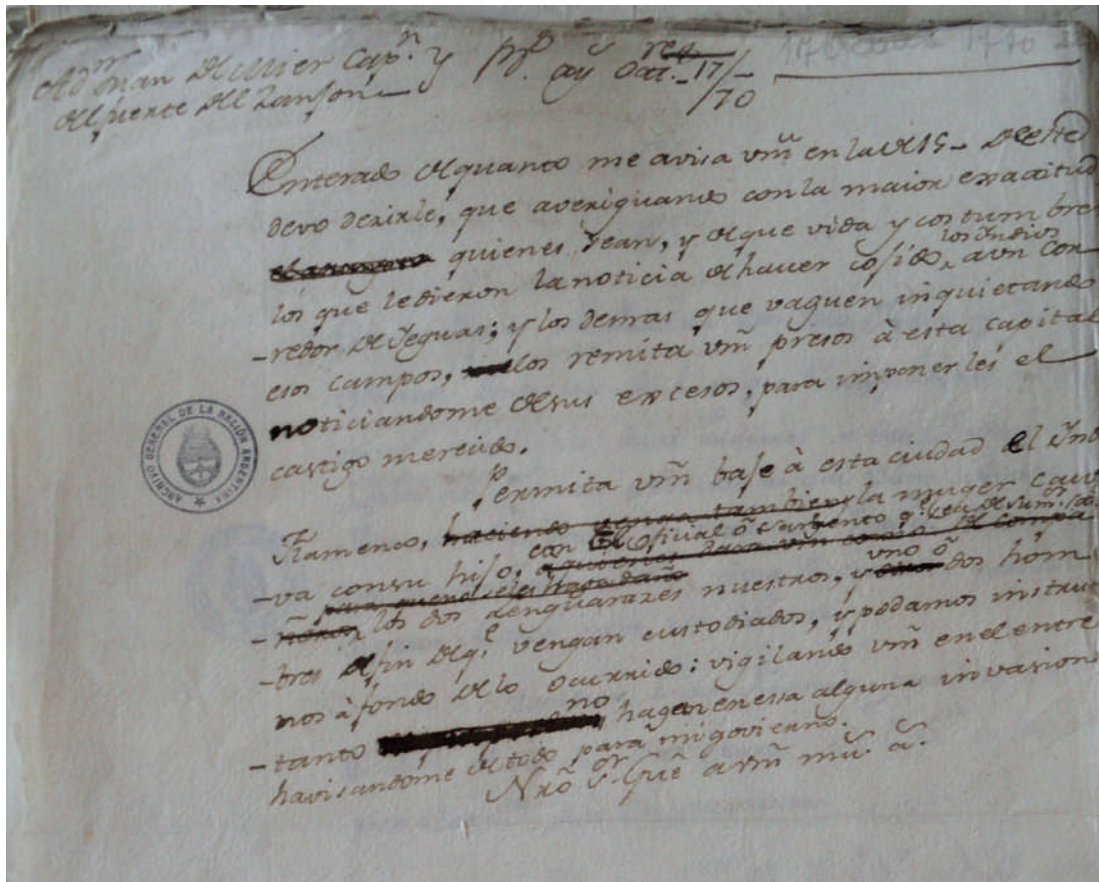 A Dn Juan de Mier Capn y Bs. ays Octe 17/
del fuerte del Zanjon 70
17 Octubre 1770
Enterado de quanto me avisa vm̃ en la de 15 de este
devo decirle, que averiguando con la maior exactitud
quienes sean, y de que vida y costumbres
los que le dieron la noticia de haver cojido los Indios, a un Cor-
-redor de Yeguas; y los demas que vaguen inquietando
esos campos, los remita vm̃ presos à esta capital
noticiandome de sus excesos, para imponerles el
castigo merecido.
Permita vm̃ baje à esta ciudad el Indio
Flamenco, haciendo tambien la muger cauti-
-va con su hijo, con el oficial ò Sargento qe.
los dos Lenguarazes nuestros, y uno ò dos hom-
-bres à fin de qe. vengan custodiados, y podamos instruir-
nos à fondo de lo ocurrido: vigilando vm̃ en el entre-
-tanto no hagan en essa alguna invasion
havisandome de todo para mi govierno.
Nr̃o Sor. Gue a vm̃ ms. as.
ARCHIVO GENERAL DE LA NACIÓN ARGENTINA